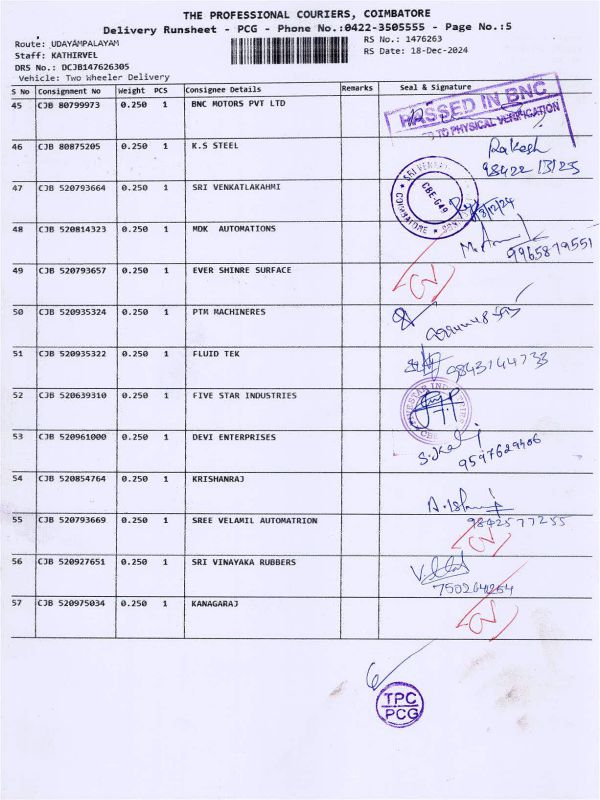 THE PROFESSIONAL COURIERS, COIMBATORE
Delivery Runsheet - PCG - Phone No.:0422-3505555 - Page No.:5
Route: UDAYAMPALAYAM
RS No.: 1476263
Staff: KATHIRVEL
RS Date: 18-Dec-2024
DRS No.: DCJB147626305
Vehicle: Two Wheeler Delivery
S No Consignment No Weight PCS Consignee Details Remarks Seal & Signature
45 CJB 80799973 0.250 1 BNC MOTORS PVT LTD
PASSED IN BNC
TO PHYSICAL VERIFICATION
46 CJB 80875205 0.250 1 K.S STEEL
Rakesh
98422 13123
47 CJB 520793664 0.250 1 SRI VENKATLAKAHMI
SRI VENKAT
CBE-649
COIMBATORE
18/12/24
48 CJB 520814323 0.250 1 MDK AUTOMATIONS
9965879551
49 CJB 520793657 0.250 1 EVER SHINRE SURFACE
50 CJB 520935324 0.250 1 PTM MACHINERES
51 CJB 520935322 0.250 1 FLUID TEK
9843144733
52 CJB 520639310 0.250 1 FIVE STAR INDUSTRIES
53 CJB 520961000 0.250 1 DEVI ENTERPRISES
9597629406
54 CJB 520854764 0.250 1 KRISHANRAJ
55 CJB 520793669 0.250 1 SREE VELAMIL AUTOMATRION
9842577255
56 CJB 520927651 0.250 1 SRI VINAYAKA RUBBERS
7502641264
57 CJB 520975034 0.250 1 KANAGARAJ
TPC
PCG